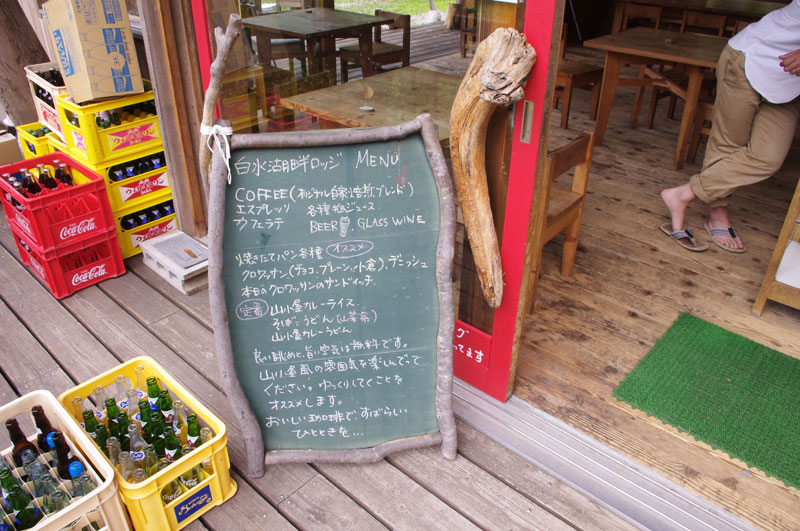 白水湖畔ロッジ MENU
COFFEE(オリジナル自家焙煎ブレンド)
エスプレッソ 各種瓶ジュース
カフェラテ BEER GLASS WINE
焼きたてパン各種 オススメ
クロワッサン(チョコ、プレーン、小倉)、デニッシュ
本日のクロワッサンのサンドイッチ
定番 山小屋カレーライス
そば・うどん(山菜)
山小屋カレーうどん
良い眺めと、良い空気は無料です。
山小屋風の雰囲気を楽しんでって
ください。ゆっくりしてくことを
オススメします。
おいしい珈琲で、すばらしい
ひとときを…
Coca-Cola
Coca-Cola
グ
ってます